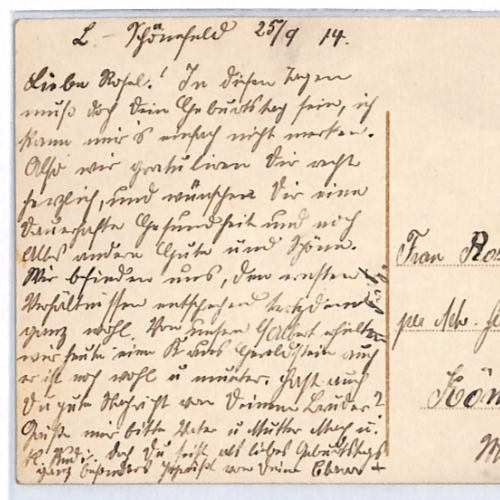 L. - Schönefeld 25/9 14.
Liebe Rosel! In diesen Tagen
muß doch Dein Geburtstag sein, ich
kann mir's einfach nicht merken.
Also wir gratuliren Dir recht
herzlich, und wünschen Dir eine
dauerhafte Gesundheit und noch
Alles andere Gute und Schöne.
Wir befinden uns, den ernsten
Verhältnissen entsprechend trotzdem
ganz wohl. Von unserm erhielten
wir heute eine K aus Gerolstein auch
er ist noch wohl u munter. Hast auch
Du gute Nachricht von Deinem Bruder?
Grüße mir bitte Vater u Mutter u.
Rudi. Doch Du seist als liebes Geburtstags
ganz besonders gegrüßt von Deine
Frau